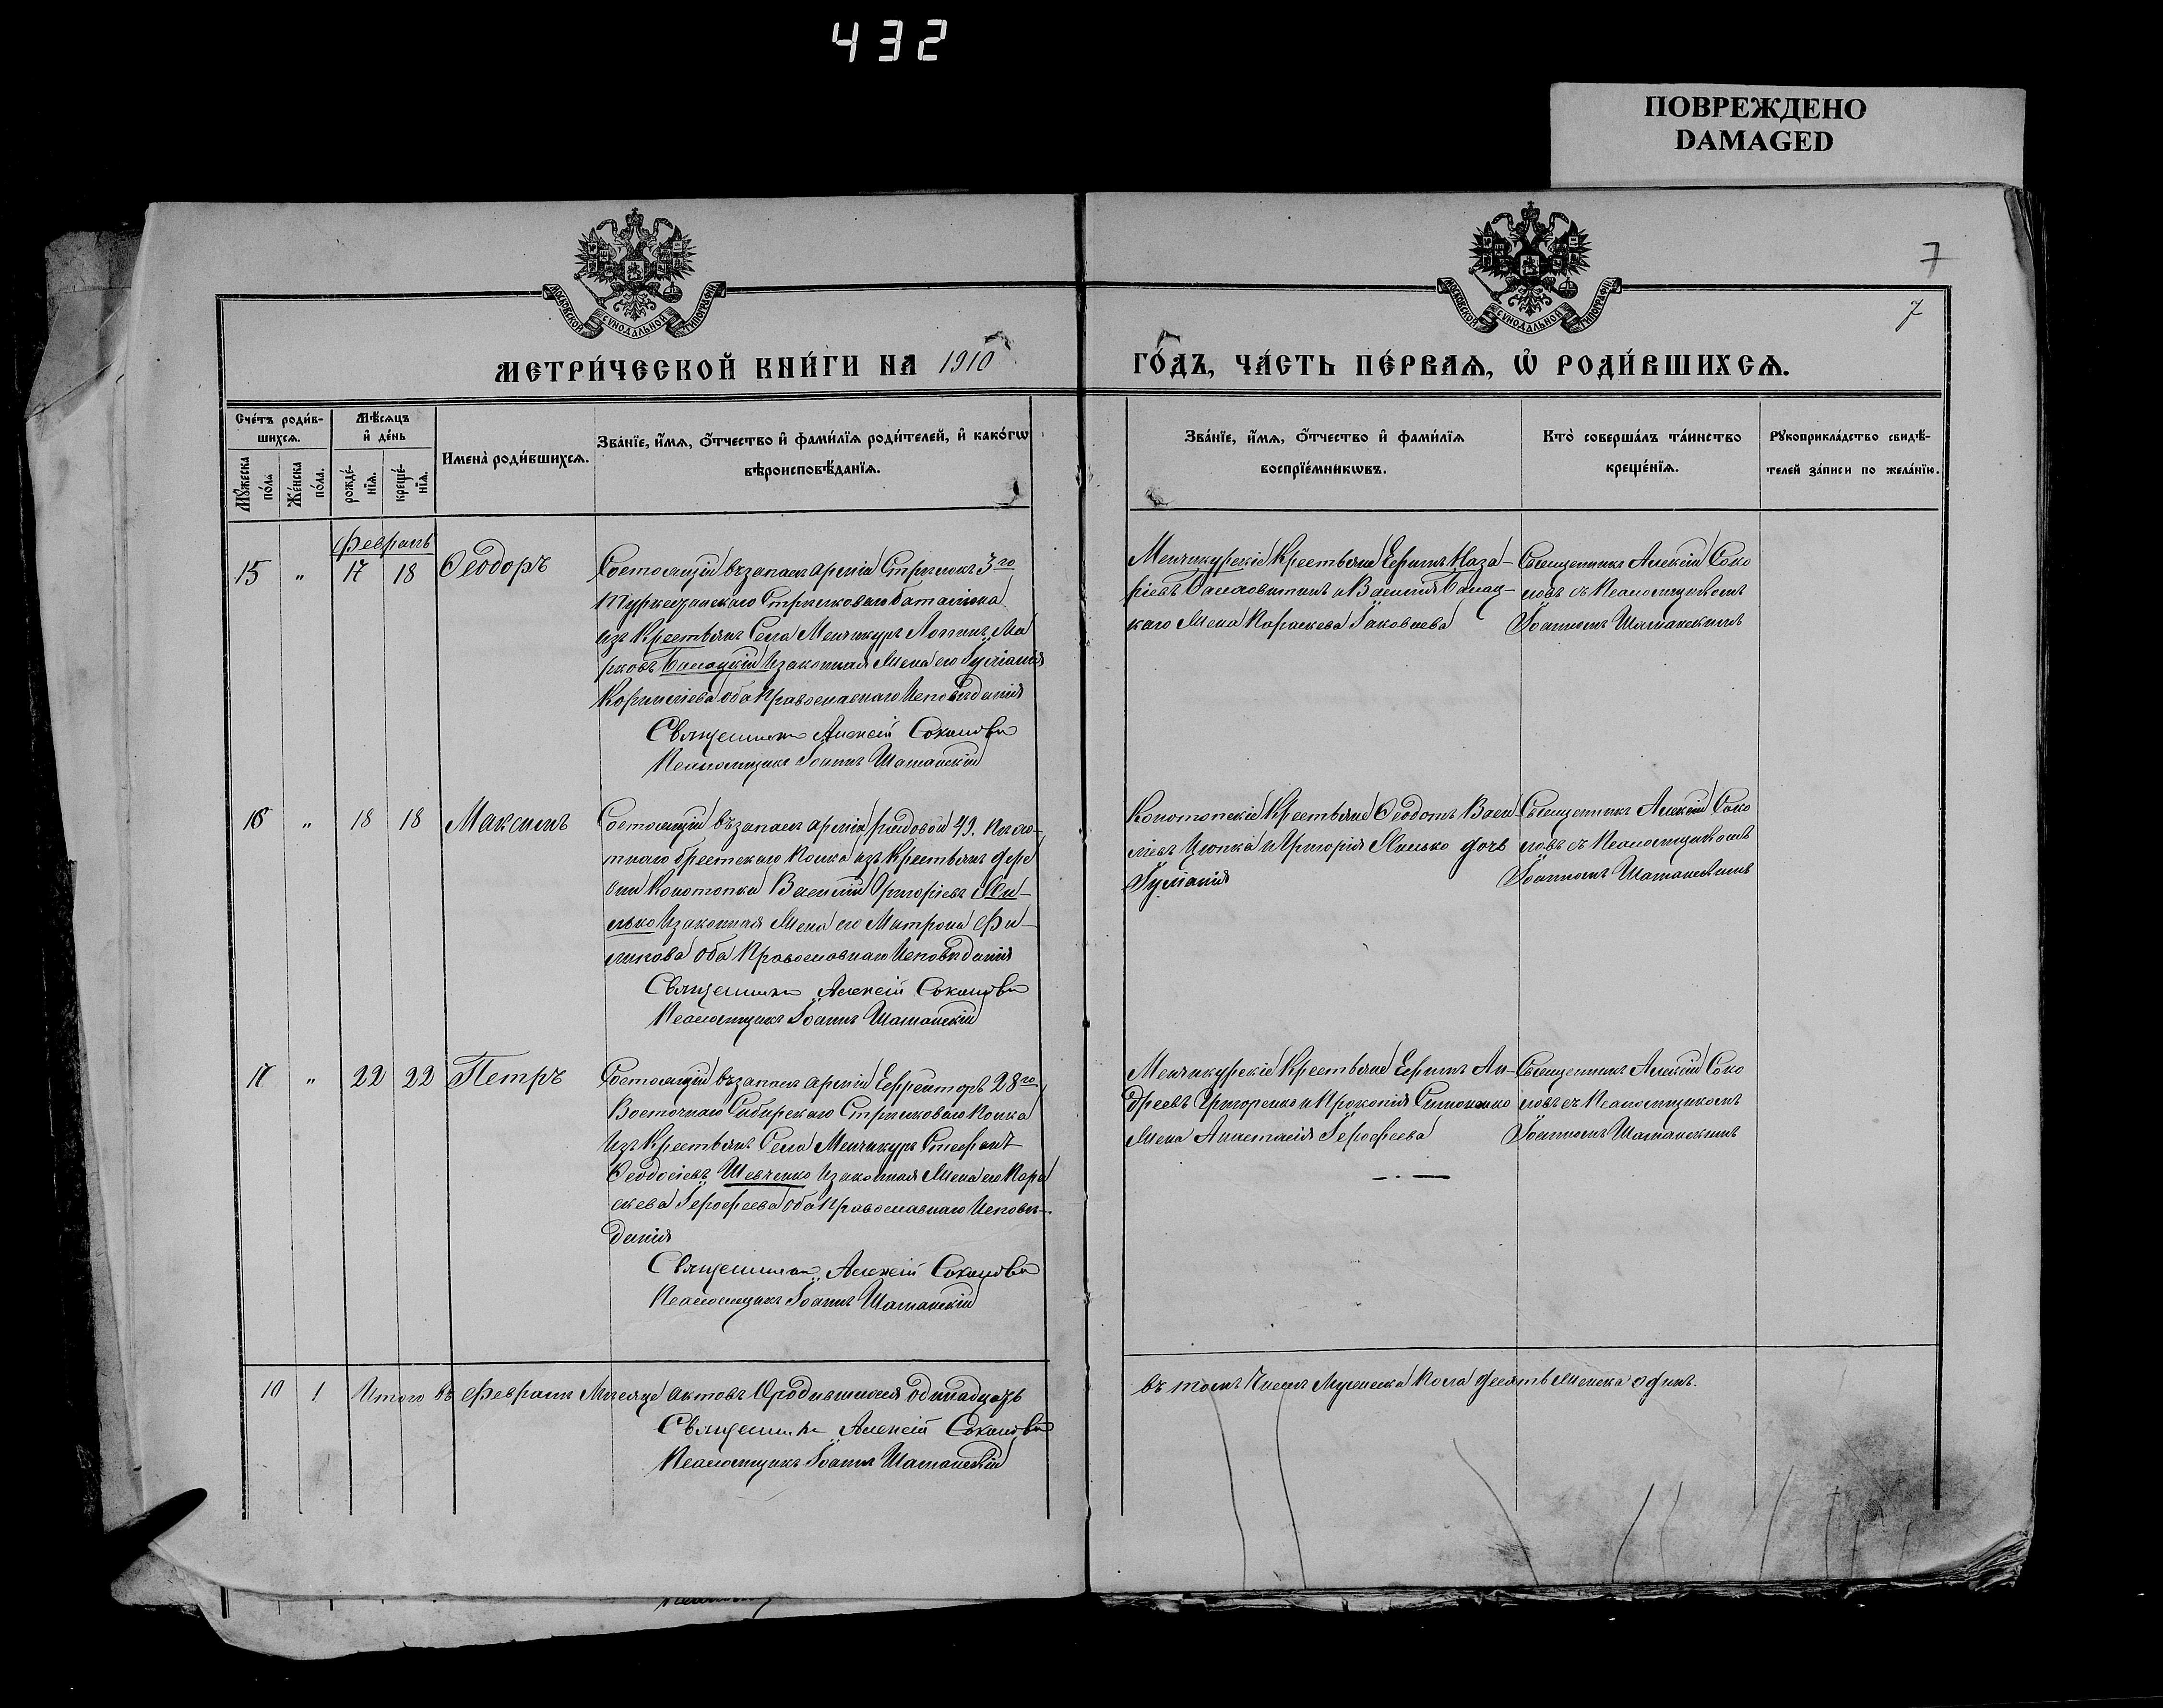 432
ПОВРЕЖДЕНО
DAMAGED
7
7
МОСКОВСКОЙ СУНОДАЛЬНОЙ ТИПОГРАФІИ
МОСКОВСКОЙ СУНОДАЛЬНОЙ ТИПОГРАФІИ
МЕТРИ́ЧЕСКОЙ КНИ́ГИ НА 1910 ГО́ДЪ, ЧА́СТЬ ПЕ́РВАѦ, Ѡ҆ РОДИ́ВШИХСѦ.
Сче́тъ роди́в-
шихсѧ.
Мꙋ́жеска по́ла
Же́нска по́ла.
Мѣ́сѧцъ
и҆ де́нь
рожде́-
нїѧ.
креще́-
нїѧ.
Имена̀ роди́вшихсѧ.
Зва́нїе, и҆́мѧ, ѻ҆́тчество и҆ фами́лїѧ роди́телей, и҆ како́гѡ
вѣроисповѣ́данїѧ.
Зва́нїе, и҆́мѧ, ѻ҆́тчество и҆ фами́лїѧ
воспрїе́мникѡвъ.
Кто̀ соверша́лъ та́инство
креще́нїѧ.
Рꙋкоприкла́дство свидѣ́-
телей за́писи по жела́нїю.
Февраль
15 " 17 18 Ѳеодоръ
Состоящій въ запасѣ арміи Стрѣлокъ 3го
Туркестанскаго Стрѣлковаго баталіона
изъ Крестьянъ Села Менчикуръ Логгинъ Ма
рковъ Балацкій и законная жена его Іуліанія
Корниліева оба Православнаго Исповѣданія
Священникъ Алексій Соколовъ
Псаломщикъ Іоаннъ Шаманскій
Менчикурскіе Крестьяне Ефимъ Наза-
ріевъ и Василія Балац-
каго жена Параскева Іаковлева
Священникъ Алексій Соко
ловъ съ Псаломщикомъ
Іоанномъ Шаманскимъ
16 " 18 18 Максимъ
Состоящій въ запасѣ арміи рядовой 49. пѣхо-
тнаго брестскаго полка изъ Крестьянъ дере
вни Конотопки Василій Григоріевъ
и законная жена его Матрона Фи-
липова оба Православнаго Исповѣданія
Священникъ Алексій Соколовъ
Псаломщикъ Іоаннъ Шаманскій
Конотопскіе Крестьяне Ѳеодотъ Васи
ліевъ Цюпка и Григорія дочь
Іуліанія
Священникъ Алексій Соко
ловъ съ Псаломщикомъ
Іоанномъ Шаманскимъ
17 " 22 22 Петръ
Состоящій въ запасѣ арміи Ефрейторъ 28го
Восточнаго Сибирскаго Стрѣлковаго полка
изъ Крестьянъ Села Менчикуръ Стефанъ
Ѳеодосіевъ Шевченко и законная жена его Пара
скева Іероѳеева оба Православнаго Исповѣ-
данія
Священникъ Алексій Соколовъ
Псаломщикъ Іоаннъ Шаманскій
Менчикурскіе Крестьяне Ефимъ Ан-
дреевъ Григоренко и Прокопія Симоненко
жена Анастасія Іероѳеева
Священникъ Алексій Соко
ловъ съ Псаломщикомъ
Іоанномъ Шаманскимъ
10 1 Итого въ Февралѣ Мѣсяцѣ актовъ о родившихся одинадцать
въ томъ числѣ мужеска пола десять женска одинъ.
Священникъ Алексій Соколовъ
Псаломщикъ Іоаннъ Шаманскій